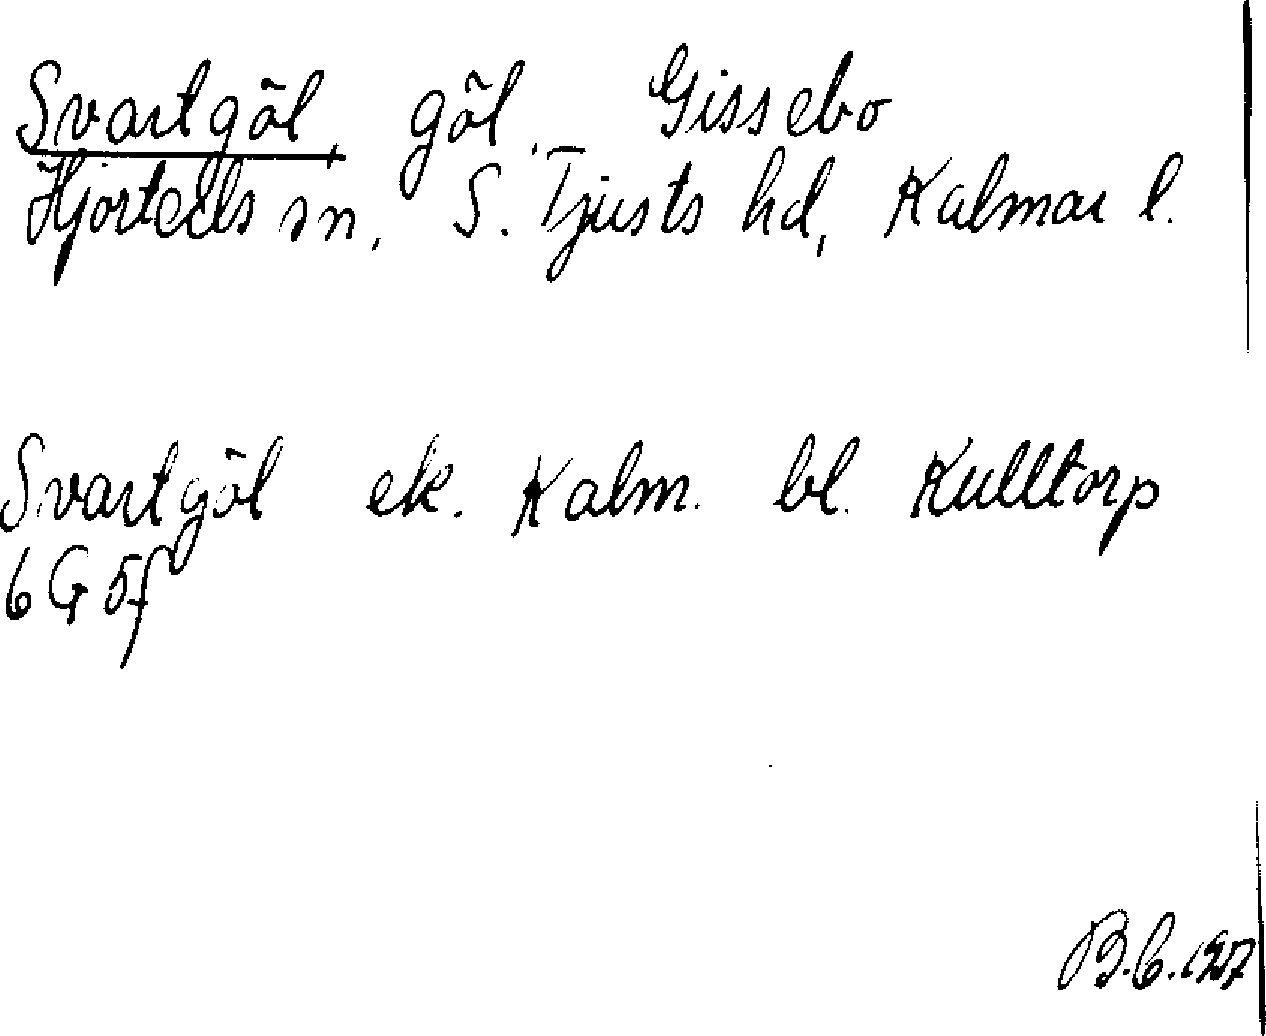 Svartgöl, göl. Gissebo
Hjorteds sn, S. Tjusts hd, Kalmar l.
Svartgöl ek. Kalm. bl. Kulltorp
6 G 5f
B.C.